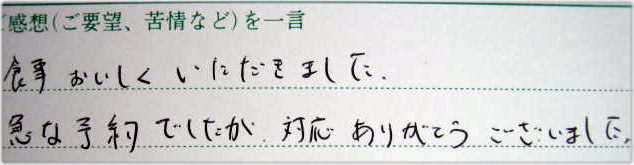 感想(ご要望、苦情など)を一言
食事 おいしく いただきました.
急な予約でしたが. 対応 ありがとう ございました.